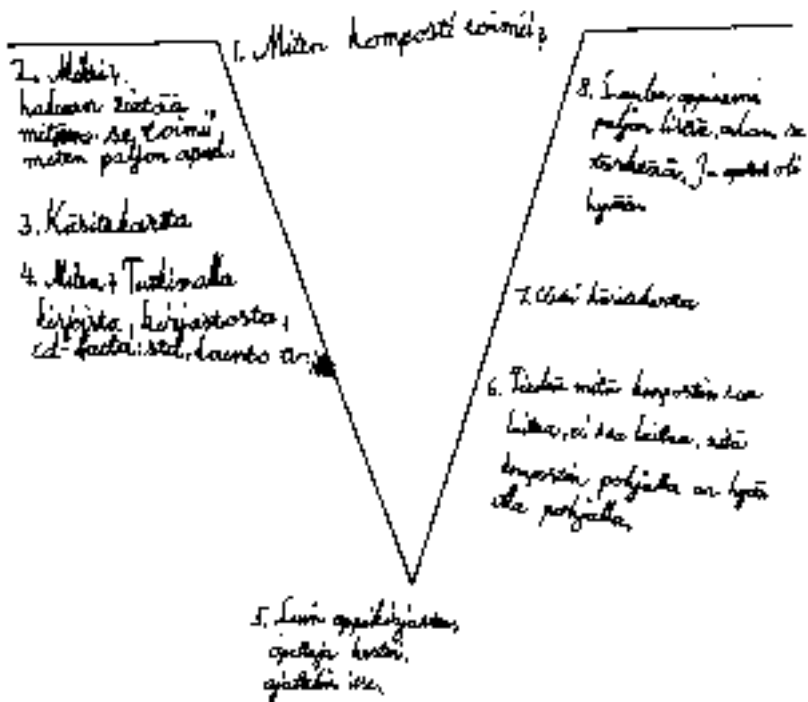 1. Miten komposti toimii?
2. Miksi?
haluan tietää
miten se toimii,
miten paljon
3. Käsitekartta
4. Miten? Tutkimalla
kirjoista, kirjastosta,
cd-
5. Luin oppikirjasta,
opettaja kertoi,
ajattelin itse.
6. Tiedän mitä kompostiin saa
laittaa, ei saa laittaa, mitä
kompostin pohjalla on hyvä
olla pohjalla.
7. Uusi käsitekartta
8. opin
paljon lisää, se
tärkeää. Ja oli
hyvää